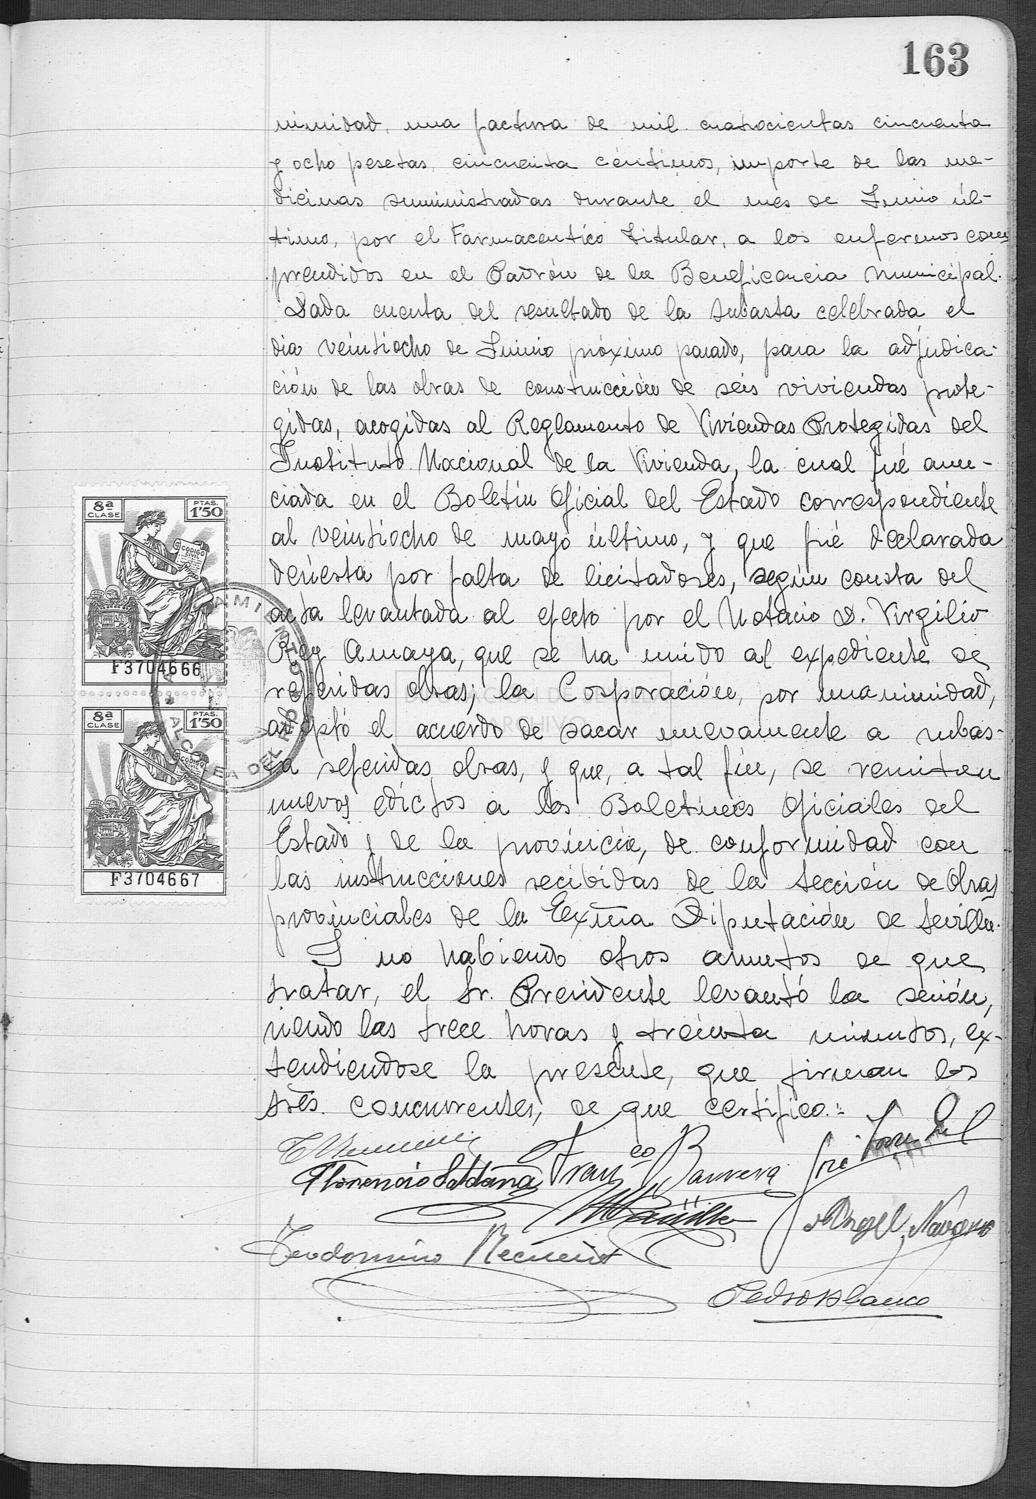 163
nimidad, una factura de mil cuatrocientas cincuenta
y ocho pesetas, cincuenta céntimos, importe de las me-
dicinas suministradas durante el mes de Junio úl-
timo, por el Farmaceutico Titular, a los enfermos com-
prendidos en el Padrón de la Beneficencia Municipal.
Dada cuenta del resultado de la subasta celebrada el
dia veintiocho de Junio próximo pasado, para la adjudica-
ción de las obras de construcción de seis viviendas prote-
gidas, acogidas al Reglamento de Viviendas Protegidas del
Instituto Nacional de la Vivienda, la cual fué anun-
ciada en el Boletín Oficial del Estado correspondiente
al veintiocho de mayo último, y que fué declarada
desierta por falta de licitadores, según consta del
acta levantada al efecto por el Notario D. Virgilio
Rey Amaya, que se ha unido al expediente de
referidas obras; la Corporación, por unanimidad,
adoptó el acuerdo de sacar nuevamente a subas-
ta referidas obras, y que, a tal fín, se remitan
nuevos edictos a los Boletines Oficiales del
Estado y de la provincia, de conformidad con
las instrucciones recibidas de la Sección de Obras
provinciales de la Excma Diputación de Sevilla.
Y no habiendo otros asuntos de que
tratar, el Sr. Presidente levantó la sesión,
siendo las trece horas y treinta minutos, ex-
tendiendose la presente, que firman los
sres. concurrentes, de que certifico.=
Florencio Saldaña Franco Barrera José
Angel Navarro
Teodomiro
Pedro Blanco
8ª CLASE PTAS. 1'50
F3704666
8ª CLASE PTAS. 1'50
F3704667
DIPUTACIÓN DE SEVILLA
ARCHIVO